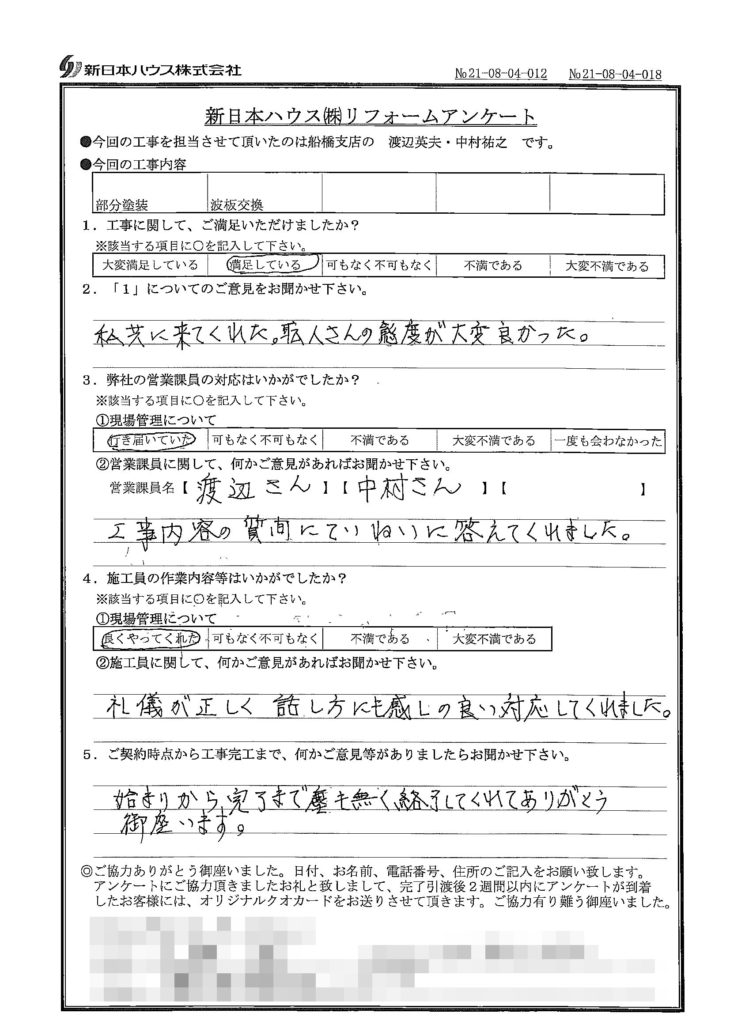 新日本ハウス株式会社 №21-08-04-012 №21-08-04-018
新日本ハウス㈱リフォームアンケート
●今回の工事を担当させて頂いたのは船橋支店の 渡辺英夫・中村祐之 です。
●今回の工事内容
部分塗装 波板交換
1．工事に関して、ご満足いただけましたか？
※該当する項目に○を記入して下さい。
大変満足している 満足している 可もなく不可もなく 不満である 大変不満である
2．「1」についてのご意見をお聞かせ下さい。
私共に来てくれた。職人さんの態度が大変良かった。
3．弊社の営業課員の対応はいかがでしたか？
※該当する項目に○を記入して下さい。
①現場管理について
行き届いていた 可もなく不可もなく 不満である 大変不満である 一度も会わなかった
②営業課員に関して、何かご意見があればお聞かせ下さい。
営業課員名【 渡辺さん 】【 中村さん 】【 】
工事内容の質問にていねいに答えてくれました。
4．施工員の作業内容等はいかがでしたか？
※該当する項目に○を記入して下さい。
①現場管理について
良くやってくれた 可もなく不可もなく 不満である 大変不満である
②施工員に関して、何かご意見があればお聞かせ下さい。
礼儀が正しく 話し方にも感じの良い対応してくれました。
5．ご契約時点から工事完工まで、何かご意見等がありましたらお聞かせ下さい。
始まりから完了まで塵も無く終了してくれてありがとう
御座います。
◎ご協力ありがとう御座いました。日付、お名前、電話番号、住所のご記入をお願い致します。
アンケートにご協力頂きましたお礼と致しまして、完了引渡後2週間以内にアンケートが到着
したお客様には、オリジナルクオカードをお送りさせて頂きます。ご協力有り難う御座いました。